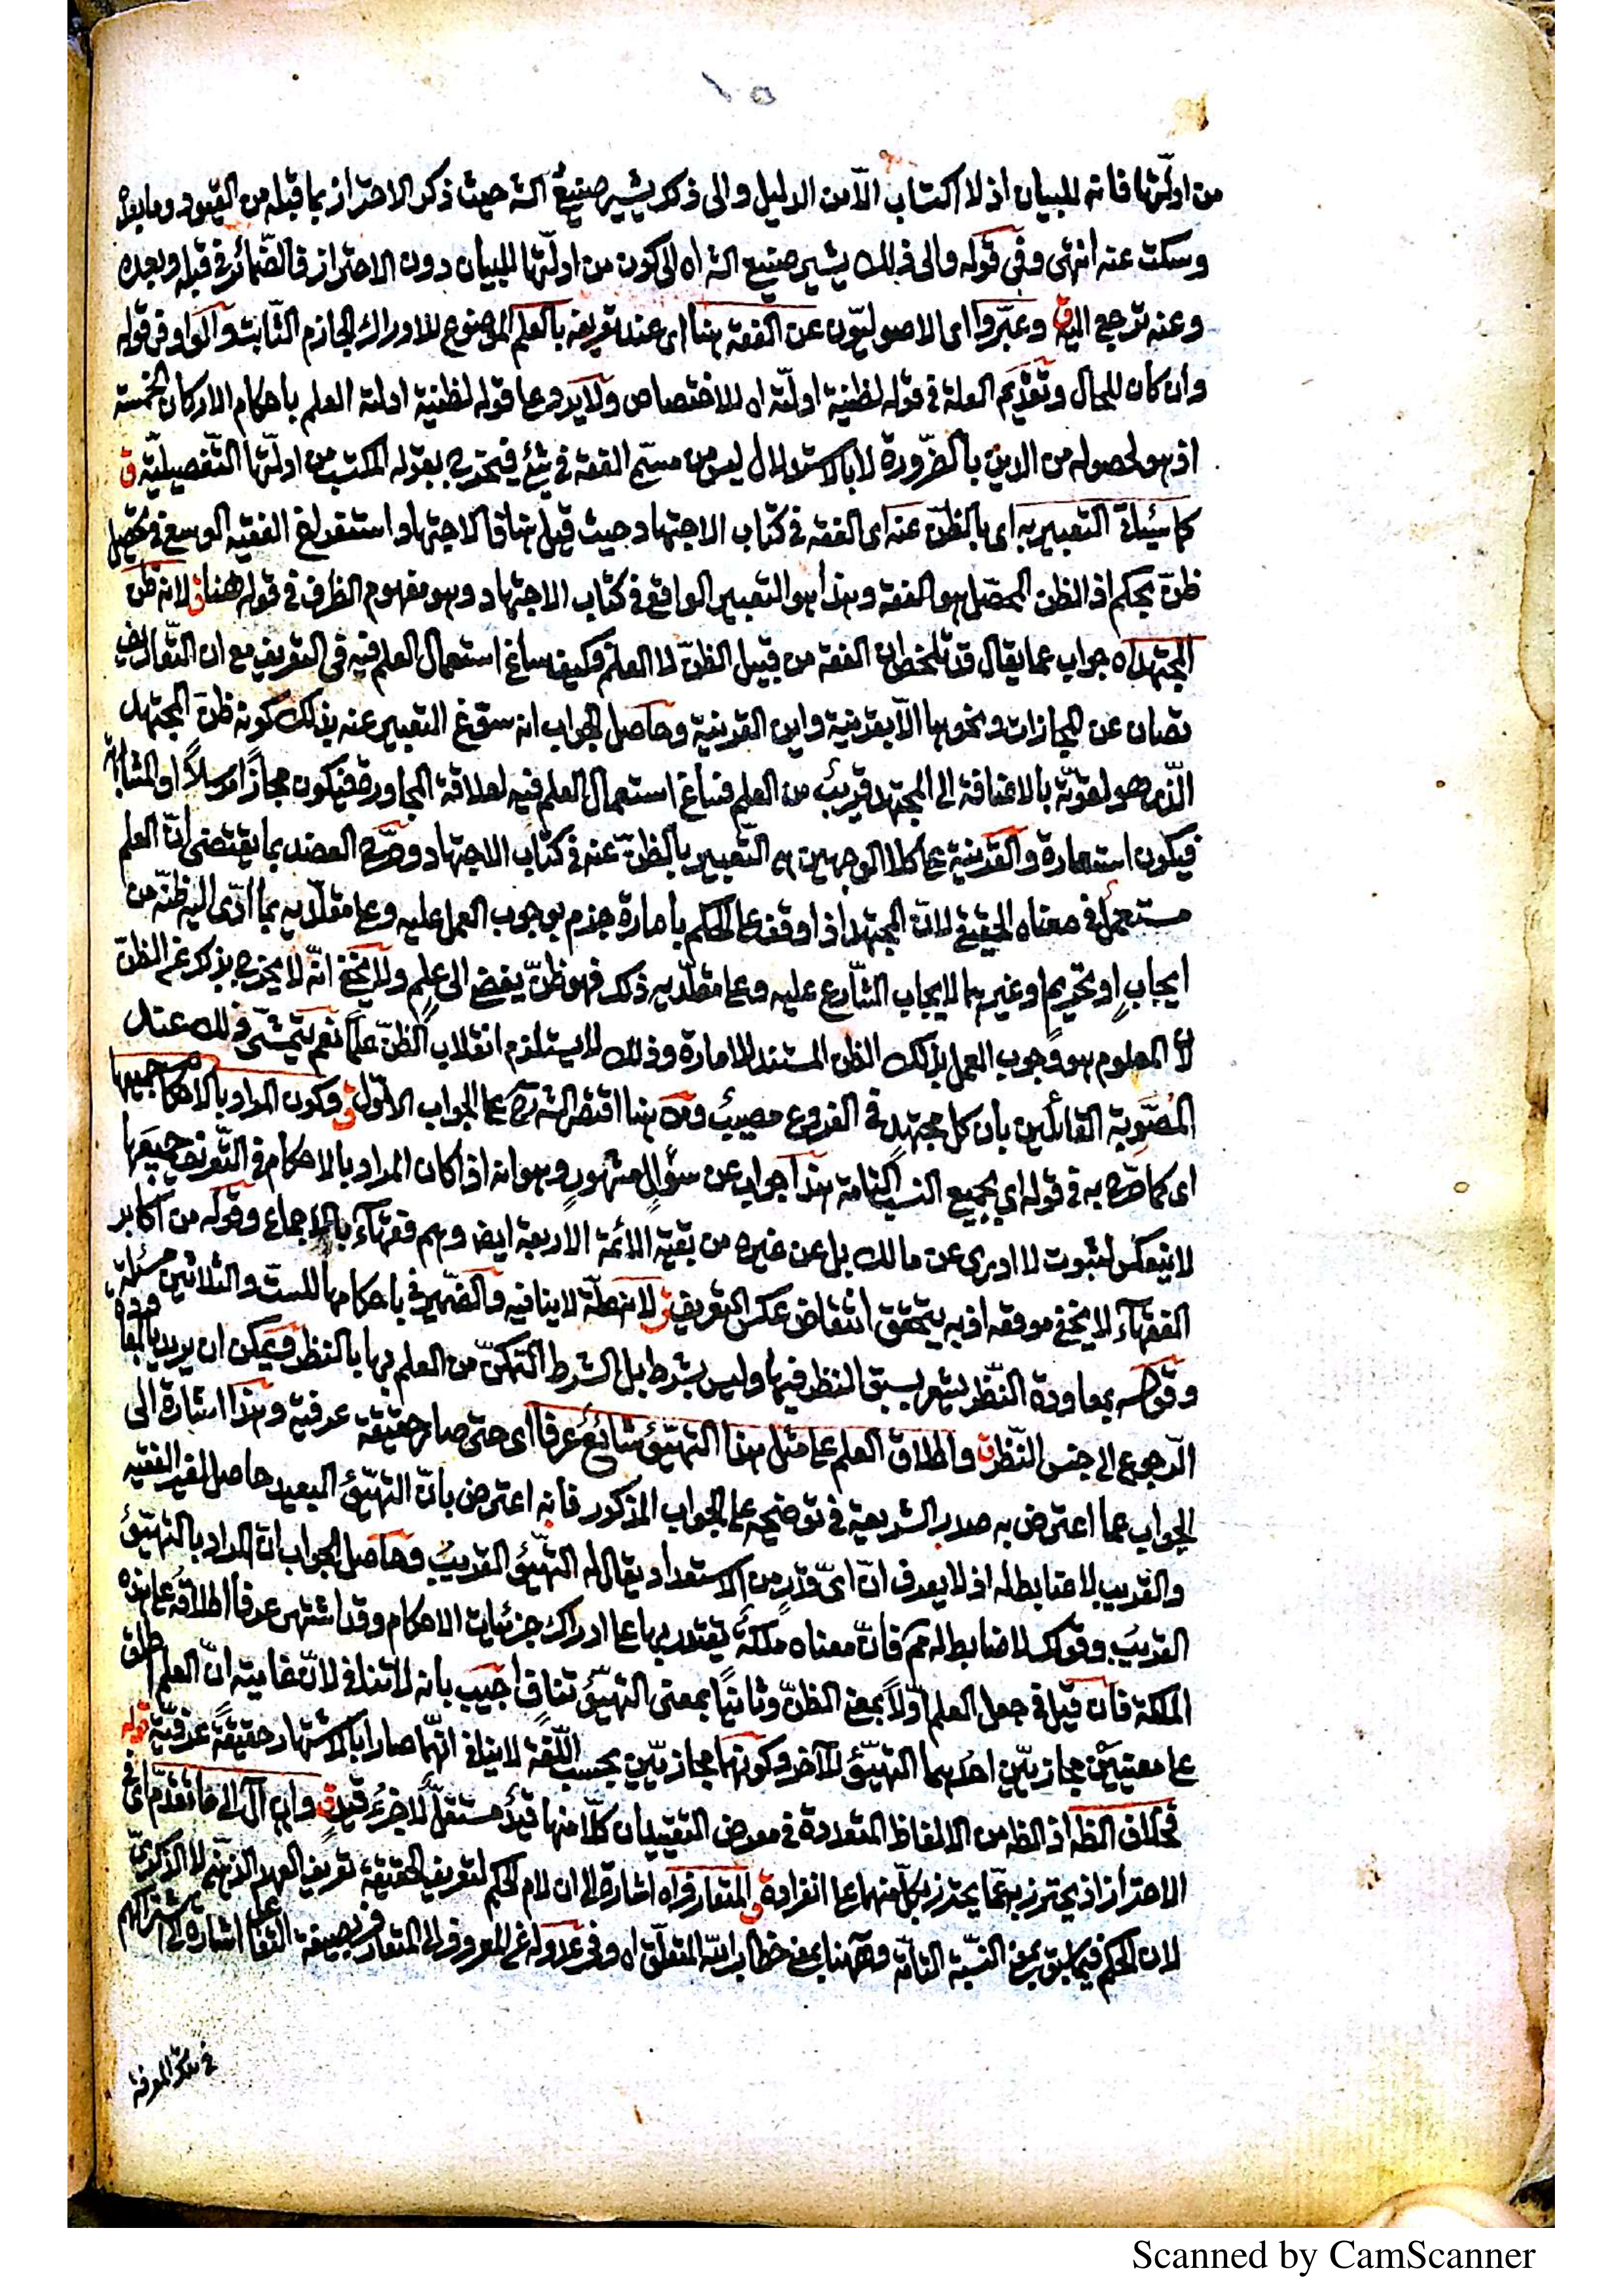 ١٥
من ادلّتها فانه للبيان اذ لا اكتساب الّا من الدليل والى ذلك يشير صنيعُ الشه حيث ذكر الاحتراز بما قبله من القيود وما بعده
وسكت عنه انتهى وفى قوله والى ذلك يشير صنيع الشه اه الى كون من ادلّتها للبيان دون الاحتراز فالضّمائر فى قبله وبعده
وعنه ترجع اليه ق وعبّروا اى الاصوليّون عن الفقه هنا اى عند تعريفه بالعلم الموضوع للادراك الجازم الثّابت والواو فى قوله
وان كان للحال وتقديم العلة فى قوله لظنية ادلّته اه للاختصاص ولا يرد على قوله لظنية ادلته العلم باحكام الاركان الخمسة
اذ هو لحصوله من الدين بالضّرورة لا بالاستدلال ليس من مسمّى الفقه فى شئ فيخرج بقوله المكتسب من ادلّتها التّفصيليّة ق
كما سيأتى التعبير به اى بالظنّ عنه اى الفقه فى كتاب الاجتهاد حيث قيل هناك الاجتهاد استفراغ الفقيه الوسع فى تحصيل
ظنّ بحكم اذ الظن المحصّل هو الفقه وهذا هو التعبير الواقع فى كتاب الاجتهاد وهو مفهوم الظرف فى قوله هنا ق لانه ظن
المجتهد اه جواب عما يقال قد تلخص ان الفقه من قبيل الظنّ لا العلم فكيف ساغ استعمال العلم فيه فى التعريف مع ان التّعاريف
تصان عن المجازات ونحوها الّا بقرينة واين القرينة وحاصل الجواب انه سوّغ التعبير عنه بذلك كونه ظنّ المجتهد
الّذى هو لقوّته بالاضافة الى المجتهد قريبٌ من العلم فساغ استعمال العلم فيه لعلاقة المجاورة فيكون مجازًا مرسلاً او المشابهة
فيكون استعارة والقرينة على كلا الوجهين هى التّعبير بالظنّ عنه فى كتاب الاجتهاد وصرّح العضد بما يقتضى انّ العلم
مستعمل فى معناه الحقيقى لانّ المجتهد اذا وقف على الحكم بامارة جزم بوجوب العمل عليه وعلى مقلّديه بما ادّى اليه ظنّه من
ايجابٍ او تحريمٍ او غيرهما لايجاب الشّارع عليه وعلى مقلّديه ذلك فهو ظنّ يفضى الى علمٍ ولا يخفى انّه لا يخرج بذلك عن الظنّ
لانّ المعلوم هو وجوب العمل بذلك الظن المستند للامارة وذلك لا يستلزم انقلاب الظنّ علمًا نعم يتمشّى ذلك عند
المُصَوِّبة القائلين بان كل مجتهدٍ فى الفروع مصيبٌ ومن هنا اقتصر الشه على الجواب الاوّل ق وكون المراد بالاحكام جميعها
اى كما صرّح به فى قوله اى بجميع النسب التّامة هذا جواب عن سؤالٍ مشهورٍ وهو انه اذا كان المراد بالاحكام فى التّعريف جميعَها
لا ينعكس لثبوت لا ادرى عن مالك بل عن غيره من بقيّة الائمّة الاربعة ايضا وهم فقهآء بالاجماع وقوله من اكابر
الفقهآء لا يخفى موقعه اذ به يتحقق انتقاض عكس التّعريف ق لانّه لا ينافيه والضّمير فى باحكامها للستّ والثلاثين مسئلة
وقوله بمعاودة النّظر يشعر بسبق النظر فيها وليس بشرط بل الشرط التمكّن من العلم بها بالنظر ويمكن ان يريد بالمعاودة
الرّجوع الى جنس النّظر ق واطلاق العلم على مثل هذا التهيّئ شائعٌ عرفا اى حتى صار حقيقة عرفية وهذا اشارة الى
الجواب عما اعترض به صدر الشريعة فى توضيحه على الجواب المذكور فانه اعترض بانّ التهيّئ البعيد حاصل لغير الفقيه
والقريب لا ضابط له اذ لا يعرف انّ اىّ قدرٍ من الاستعداد يقال له التهيّئ القريبُ وحاصل الجواب انّ المراد بالتهيّئ
القريبُ وقولك لا ضابط له مم فانّ معناه ملكةٌ يقتدر بها على ادراك جزئيات الاحكام وقد اشتهر عرفاً اطلاقه على هذه
الملكة فان قيل فى جعل العلم اوّلاً بمعنى الظنّ وثانيًا بمعنى التهيّئ تنافٍ اجيب بانه لا تنافى لانّ غايته انّ العلم اطلق
على معنيَيْن مجازيّين احدهما التهيّئ للآخر وكونهما مجازيّين بحسب اللّغة لا ينافى انّهما صارا بالاشتهار حقيقةً عرفيّةً قوله
فخلاف الظه اذ الظه من الالفاظ المتعددة فى معرض التقييد ان كلّا منها قيدٌ مستقلٌّ لا جزءُ قيدٍ ق وان آل الى ما تقدّم اى فى
الاحتراز اذ يحترز بهما عمّا يحترز بكلّ منهما على انفراده ق المتعارف اه اشارة الى ان لام الحكم لتعريف الحقيقة تعريف العهد الذهنى لا الذكرى
لان الحكم فيما سبق بمعنى النسبة التامّة وههنا بمعنى خطاب الله المتعلّق اه وفى عدوله عن المعروف الى المتعارف بصيغة التفاعل اشارة الى اشتراكهم
فى تلك المعرفة
Scanned by CamScanner